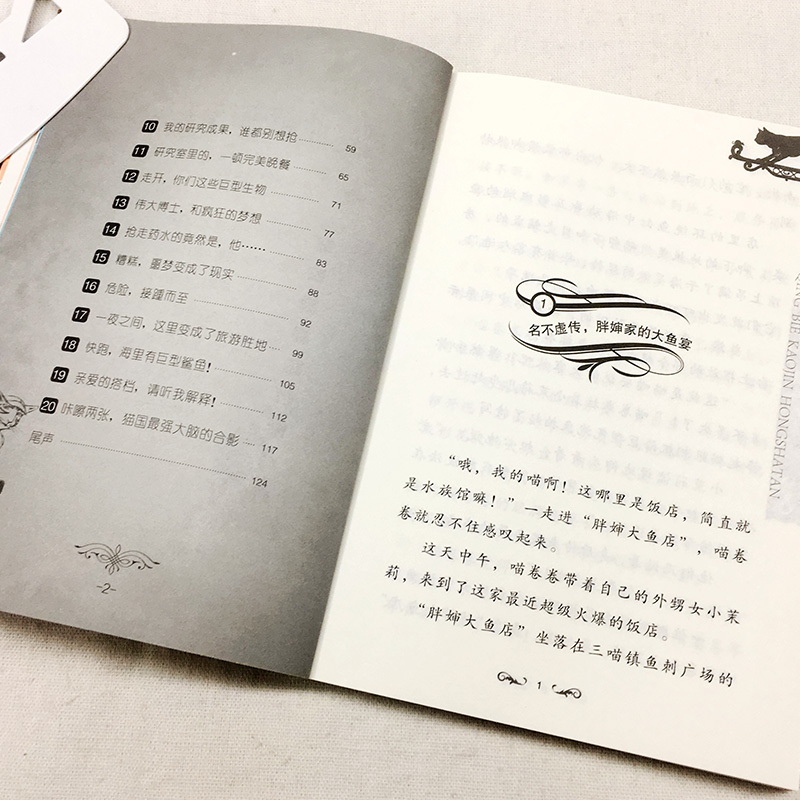 10 我的研究成果，谁都别想抢 59
11 研究室里的，一顿完美晚餐 65
12 走开，你们这些巨型生物 71
13 伟大博士，和疯狂的梦想 77
14 抢走药水的竟然是，他…… 83
15 糟糕，噩梦变成了现实 88
16 危险，接踵而至 92
17 一夜之间，这里变成了旅游胜地 99
18 快跑，海里有巨型鲨鱼！ 105
19 亲爱的搭档，请听我解释！ 112
20 咔嚓两张，猫国最强大脑的合影 117
尾声 124
-2-
1
名不虚传，胖婶家的大鱼宴
“哦，我的喵啊！这哪里是饭店，简直就
是水族馆嘛！”一走进“胖婶大鱼店”，喵卷
卷就忍不住感叹起来。
这天中午，喵卷卷带着自己的外甥女小茉
莉，来到了这家最近超级火爆的饭店。
“胖婶大鱼店”坐落在三喵镇鱼刺广场的
1
QING BIE KAOJIN HONGSHATAN